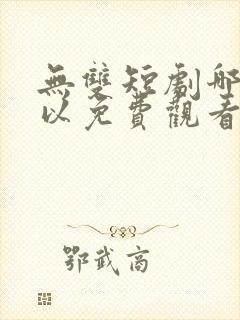 無雙短劇哪
以免費觀看
鄂武商